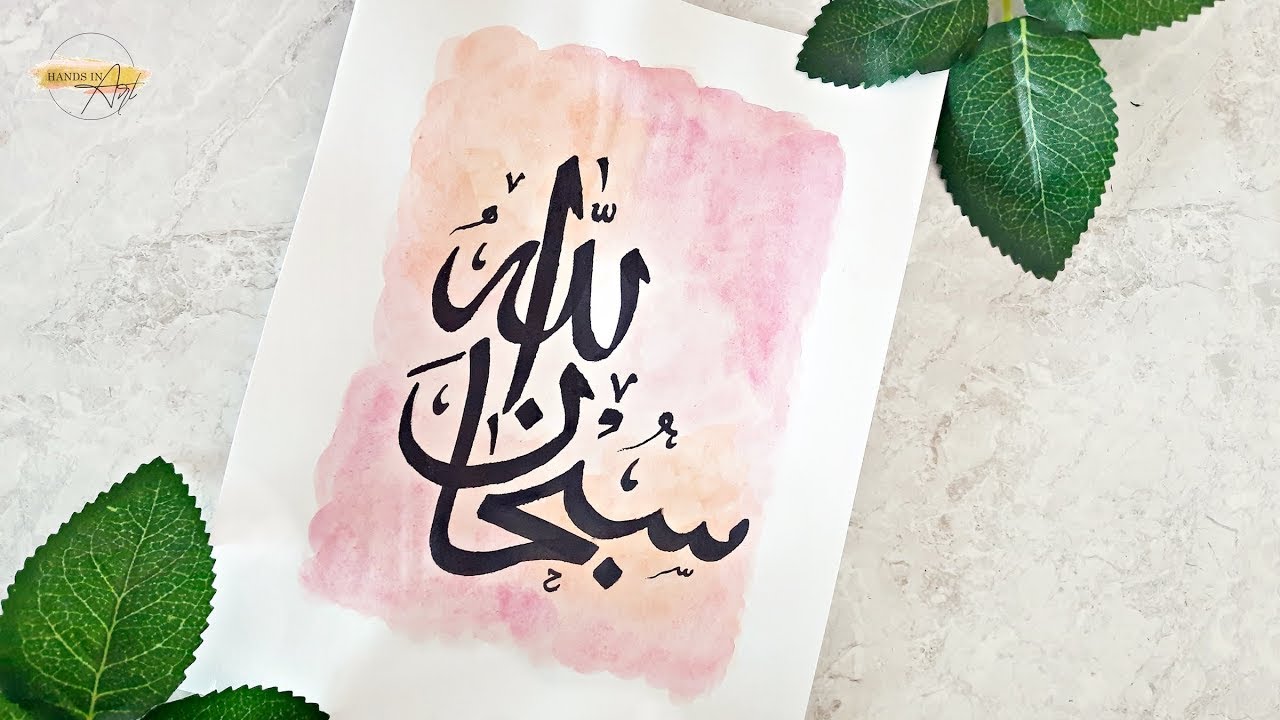 HANDS IN
Art
سُبْحَانَ
اللهِ